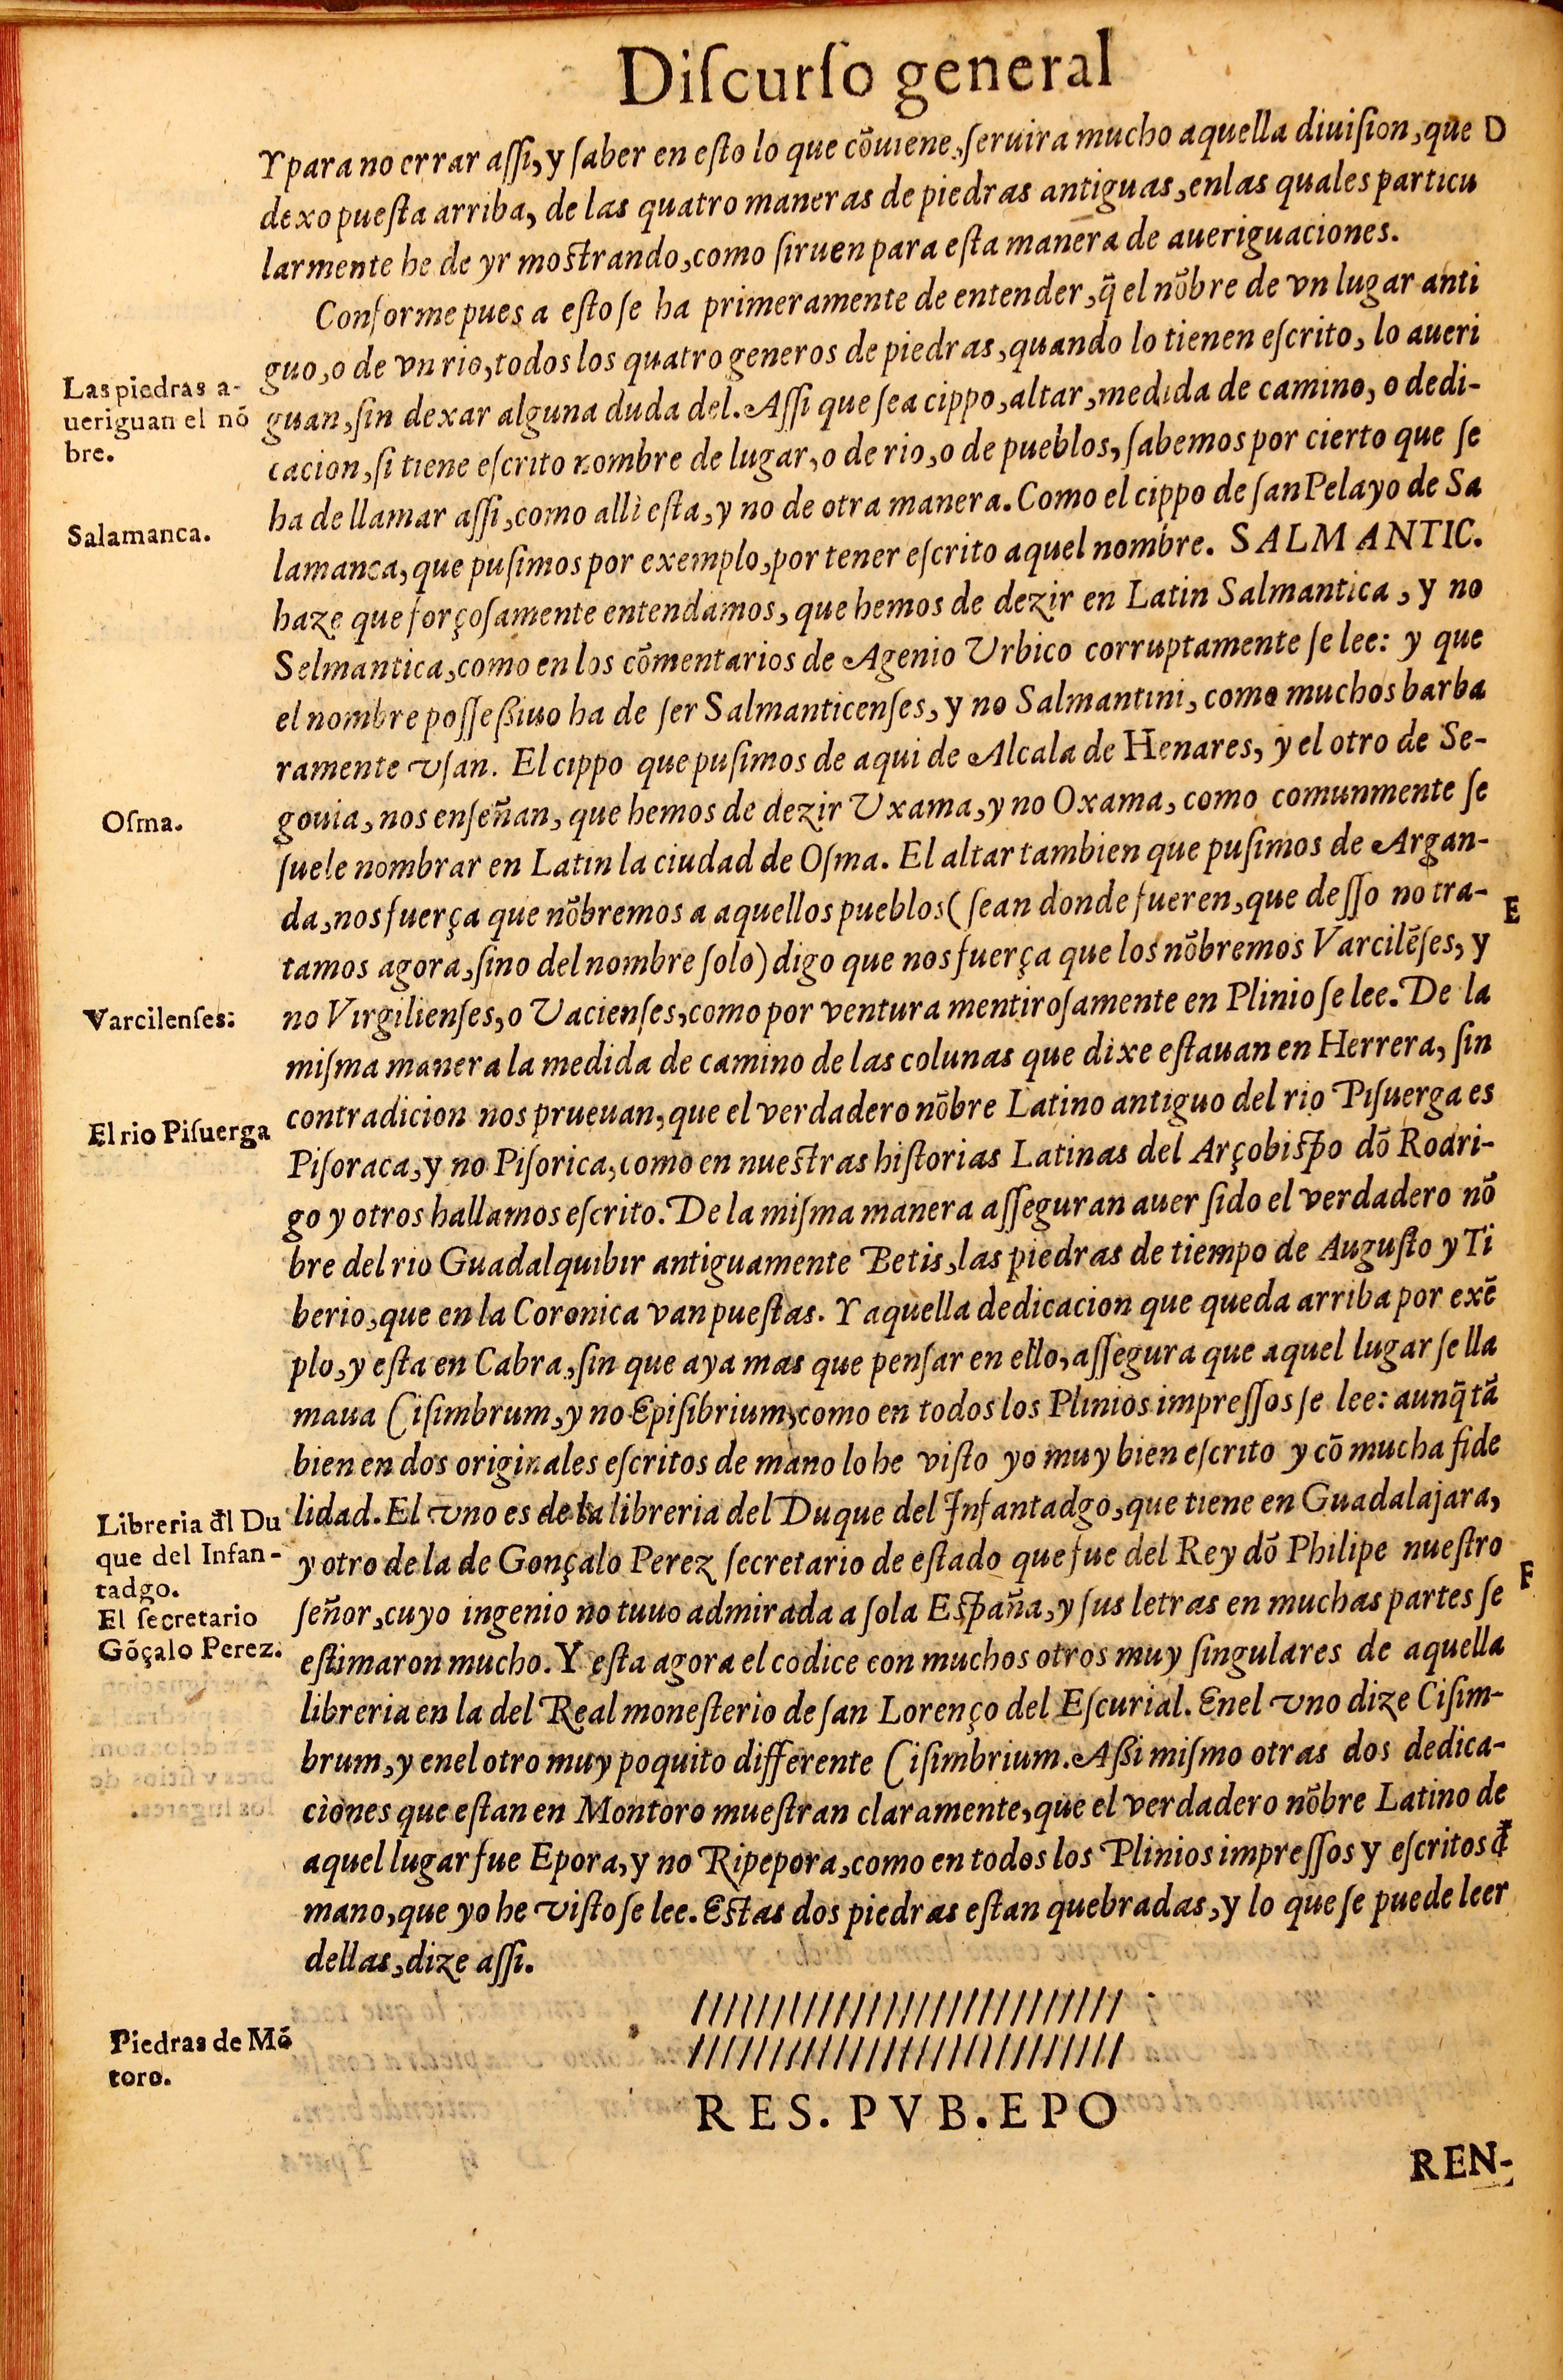 Diſcurſo general
Y para no errar aſſi, y ſaber en eſto lo que cõuiene, ſeruira mucho aquella diuiſion, que D
dexo pueſta arriba, de las quatro maneras de piedras antiguas, enlas quales particu
larmente he de yr moſtrando, como ſiruen para eſta manera de aueriguaciones.
Conforme pues a eſto ſe ha primeramente de entender, q̃ el nõbre de vn lugar anti
guo, o de vn rio, todos los quatro generos de piedras, quando lo tienen eſcrito, lo aueri
Las piedras a-
ueriguan el nõ
bre.
guan, ſin dexar alguna duda del. Aſſi que ſea cippo, altar, medida de camino, o dedi-
cacion, ſi tiene eſcrito nombre de lugar, o de rio, o de pueblos, ſabemos por cierto que ſe
ha de llamar aſſi, como alli eſta, y no de otra manera. Como el cippo de ſan Pelayo de Sa
Salamanca.
lamanca, que puſimos por exemplo, por tener eſcrito aquel nombre. SALMANTIC.
haze que forçoſamente entendamos, que hemos de dezir en Latin Salmantica, y no
Selmantica, como en los cõmentarios de Agenio Vrbico corruptamente ſe lee: y que
el nombre poſſeßiuo ha de ſer Salmanticenſes, y no Salmantini, como muchos barba
ramente vſan. El cippo que puſimos de aqui de Alcala de Henares, y el otro de Se-
Oſma.
gouia, nos enſeñan, que hemos de dezir Vxama, y no Oxama, como comunmente ſe
ſuele nombrar en Latin la ciudad de Oſma. El altar tambien que puſimos de Argan-
da, nos fuerça que nõbremos a aquellos pueblos (ſean donde fueren, que deſſo no tra- E
tamos agora, ſino del nombre ſolo) digo que nos fuerça que los nõbremos Varcilẽſes, y
Varcilenſes:
no Virgilienſes, o Vacienſes, como por ventura mentiroſamente en Plinio ſe lee. De la
miſma manera la medida de camino de las colunas que dixe eſtauan en Herrera, ſin
El rio Piſuerga
contradicion nos prueuan, que el verdadero nõbre Latino antiguo del rio Piſuerga es
Piſoraca, y no Piſorica, como en nueſtras hiſtorias Latinas del Arçobiſpo dõ Rodri-
go y otros hallamos eſcrito. De la miſma manera aſſeguran auer ſido el verdadero nõ
bre del rio Guadalquibir antiguamente Betis, las piedras de tiempo de Auguſto y Ti
berio, que en la Coronica van pueſtas. Y aquella dedicacion que queda arriba por exẽ
plo, y eſta en Cabra, ſin que aya mas que penſar en ello, aſſegura que aquel lugar ſe lla
maua Ciſimbrum, y no Epiſibrium, como en todos los Plinios impreſſos ſe lee: aunq̃ tã
bien en dos originales eſcritos de mano lo he viſto yo muy bien eſcrito y cõ mucha fide
Libreria đl Du
que del Infan-
tadgo.
lidad. El vno es de la libreria del Duque del Infantadgo, que tiene en Guadalajara,
y otro de la de Gonçalo Perez ſecretario de eſtado que fue del Rey dõ Philipe nueſtro F
El ſecretario
Gõçalo Perez.
ſeñor, cuyo ingenio no tuuo admirada a ſola Eſpaña, y ſus letras en muchas partes ſe
eſtimaron mucho. Y eſta agora el codice con muchos otros muy ſingulares de aquella
libreria en la del Real moneſterio de ſan Lorenço del Eſcurial. Enel vno dize Ciſim-
brum, y enel otro muy poquito differente Ciſimbrium. Aßi miſmo otras dos dedica-
ciones que eſtan en Montoro mueſtran claramente, que el verdadero nõbre Latino de
aquel lugar fue Epora, y no Ripepora, como en todos los Plinios impreſſos y eſcritos đ
mano, que yo he viſto ſe lee. Eſtas dos piedras eſtan quebradas, y lo que ſe puede leer
dellas, dize aſſi.
Piedras de Mõ
toro.
//////////////////////////
//////////////////////////
RES. PVB. EPO
REN-